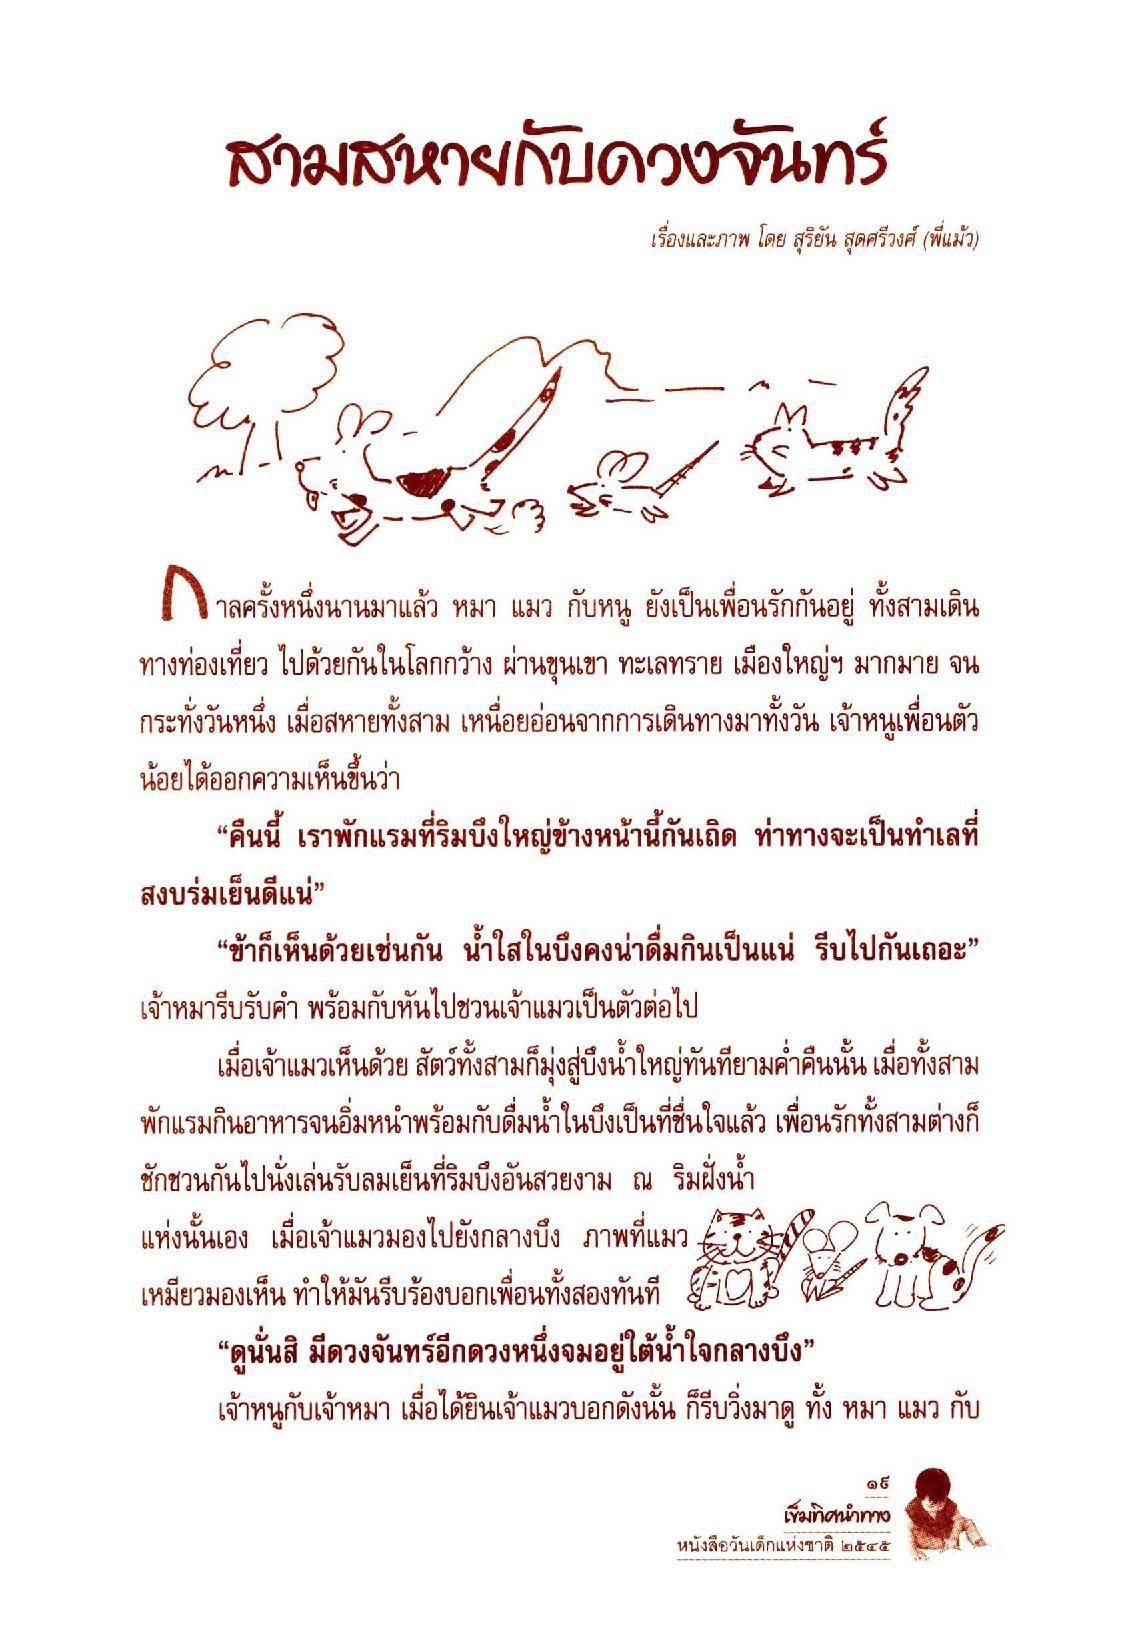 สามสหายกับดวงจันทร์
เรื่องและภาพ โดย สุริยัน สุดศรีวงศ์ (พี่แม้ว)
กาลครั้งหนึ่งนานมาแล้ว หมา แมว กับหนู ยังเป็นเพื่อนรักกันอยู่ ทั้งสามเดิน
ทางท่องเที่ยว ไปด้วยกันในโลกกว้าง ผ่านขุนเขา ทะเลทราย เมืองใหญ่ฯ มากมาย จน
กระทั่งวันหนึ่ง เมื่อสหายทั้งสาม เหนื่อยอ่อนจากการเดินทางมาทั้งวัน เจ้าหนูเพื่อนตัว
น้อยได้ออกความเห็นขึ้นว่า
“คืนนี้ เราพักแรมที่ริมบึงใหญ่ข้างหน้านี้กันเถิด ท่าทางจะเป็นทำเลที่
สงบร่มเย็นดีแน่”
“ข้าก็เห็นด้วยเช่นกัน น้ำใสในบึงคงน่าดื่มกินเป็นแน่ รีบไปกันเถอะ”
เจ้าหมารีบรับคำ พร้อมกับหันไปชวนเจ้าแมวเป็นตัวต่อไป
เมื่อเจ้าแมวเห็นด้วย สัตว์ทั้งสามก็มุ่งสู่บึงน้ำใหญ่ทันทียามค่ำคืนนั้น เมื่อทั้งสาม
พักแรมกินอาหารจนอิ่มหนำพร้อมกับดื่มน้ำในบึงเป็นที่ชื่นใจแล้ว เพื่อนรักทั้งสามต่างก็
ชักชวนกันไปนั่งเล่นรับลมเย็นที่ริมบึงอันสวยงาม ณ ริมฝั่งน้ำ
แห่งนั้นเอง เมื่อเจ้าแมวมองไปยังกลางบึง ภาพที่แมว
เหมียวมองเห็น ทำให้มันรีบร้องบอกเพื่อนทั้งสองทันที
“ดูนั่นสิ มีดวงจันทร์อีกดวงหนึ่งจมอยู่ใต้น้ำใจกลางบึง”
เจ้าหนูกับเจ้าหมา เมื่อได้ยินเจ้าแมวบอกดังนั้น ก็รีบวิ่งมาดู ทั้ง หมา แมว กับ
๑๙
เข็มทิศนำทาง
หนังสือวันเด็กแห่งชาติ ๒๕๔๕